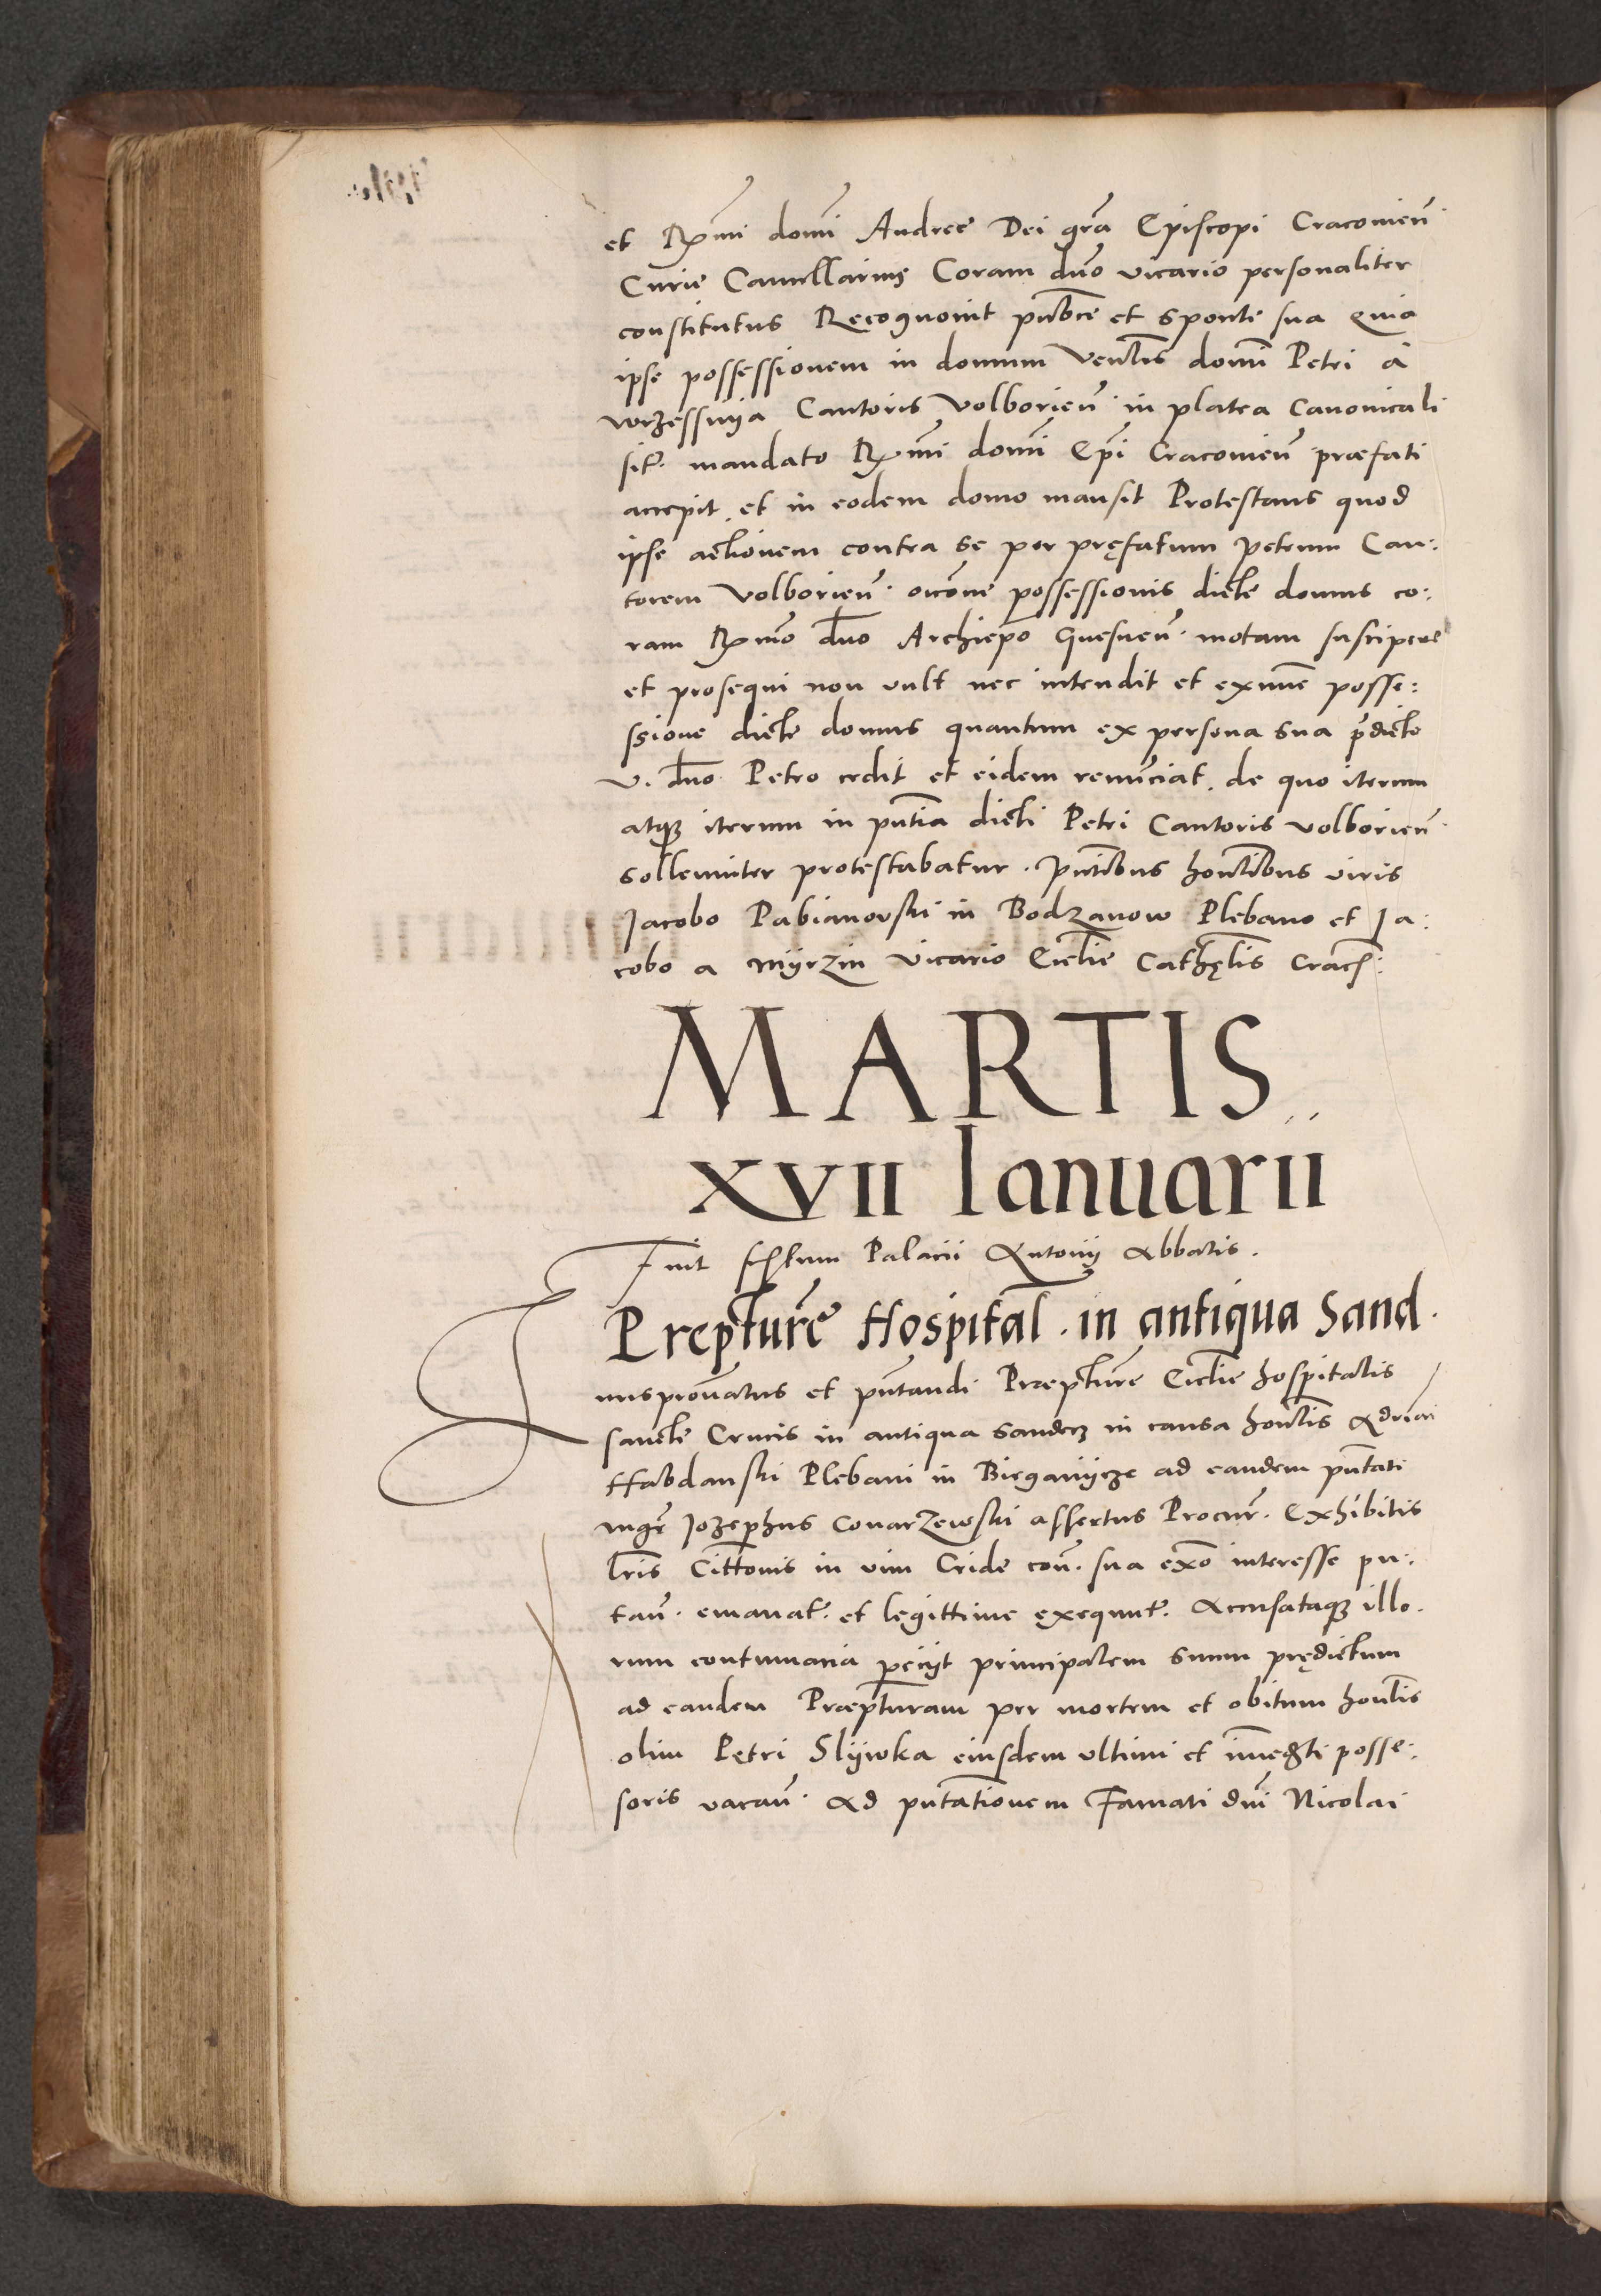 et Rmi domi Andree Dei gra Episcopi Cracovien
Curie Cancellarius Coram duo vicario personaliter
constitutus Recognovit publice et sponte sua Quia
ipse possessionem in domum Venlis domi Petri a
Wrzessnya Cantoris Volborien in platea Canonicali
sit. mandato Rmi domi Epi Cracovien præfati
accepit et in eodem domo mansit Protestans quod
ipse actionem contra se per pręfatum Petrum Can:
torem Volborien. occone possessionis dicte domus co:
ram Rmo duo Archiepo Gnesnen. motam suscipere
et prosequi non vult nec intendit et exnunc posse:
ssione dicte domus quantum ex persona sua pdicto
V. duo Petro cedit et eidem renunciat. de quo iterum
atque iterum in pntia dicti Petri Cantoris Volborien
sollemniter protestabatur. Pntibus honlibus viris
Jacobo Pabianovski in Bodzanow Plebano et Ja:
cobo a Myrzin Vicario Ecclie Cathęlis Cracn:
MARTIS
XVII Ianuarii
Fuit festum Palacii Antonij Abbatis.
Prepture Hospital. in antiqua Sand.
iuspronatus et pntandi Præpture Ecclie hospitalis
sancte Crucis in antiqua Sandecz in causa honlis Adriani
Habdanski Plebani in Bieganycze ad eandem pntati
mgr Jozephus Covarzewski assertus Procur. Exhibitis
lris Cittonis in vim Cride con. sua exo interesse pu:
tan. emanat. et legittime exequut. Accusataque illo.
rum contumacia peciit principalem suum prędictum
ad eandem Præpturam per mortem et obitum honlis
olim Petri Slywka eiusdem ultimi et immedti posse:
soris vacan. Ad pntationem Famati dni Nicolai